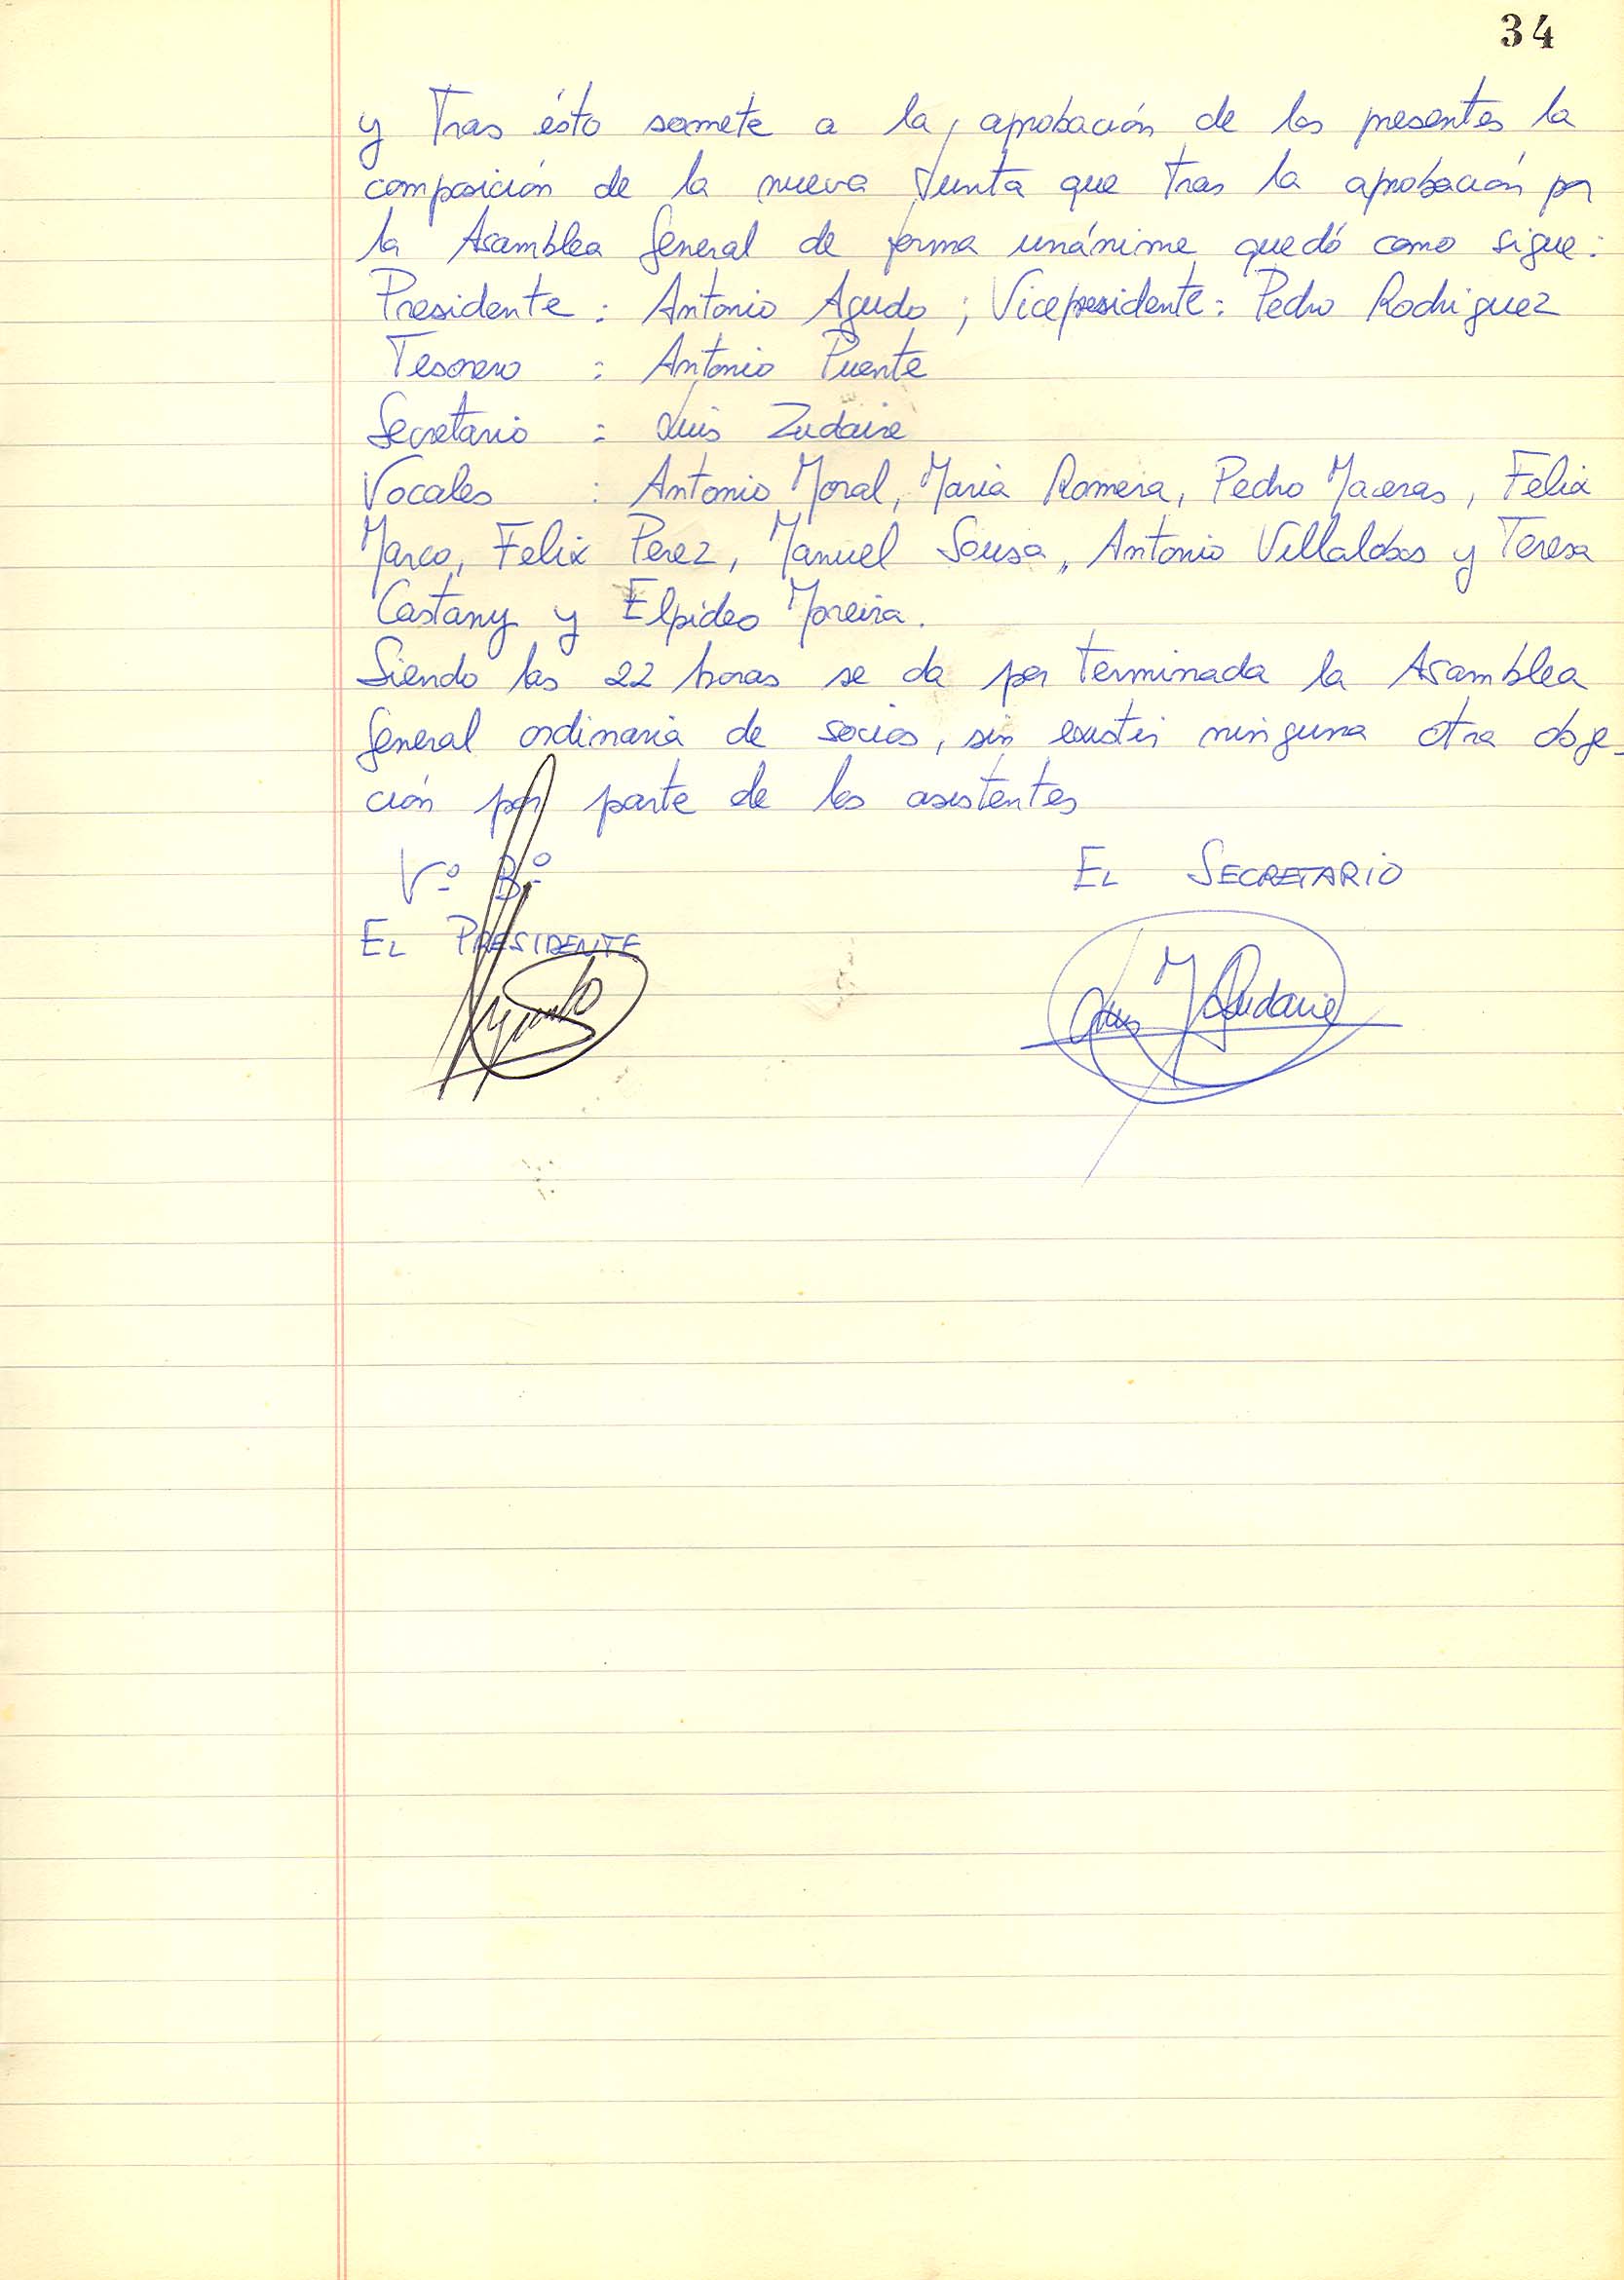 34
y tras ésto somete a la aprobación de los presentes la
composición de la nueva Junta que tras la aprobación por
la Asamblea General de forma unánime quedó como sigue:
Presidente : Antonio Agudo ; Vicepresidente : Pedro Rodriguez
Tesorero : Antonio Puente
Secretario : Luis Zudaire
Vocales : Antonio Moral, Maria Romera, Pedro Maceras, Felix
Marco, Felix Perez, Manuel Sousa, Antonio Villalobos y Teresa
Castany y Elpideo Moreira.
Siendo las 22 horas se da por terminada la Asamblea
General ordinaria de socios, sin existir ninguna otra obje-
ción por parte de los asistentes
Vº Bº
EL SECRETARIO
EL PRESIDENTE
Agudo
Luis M Zudaire